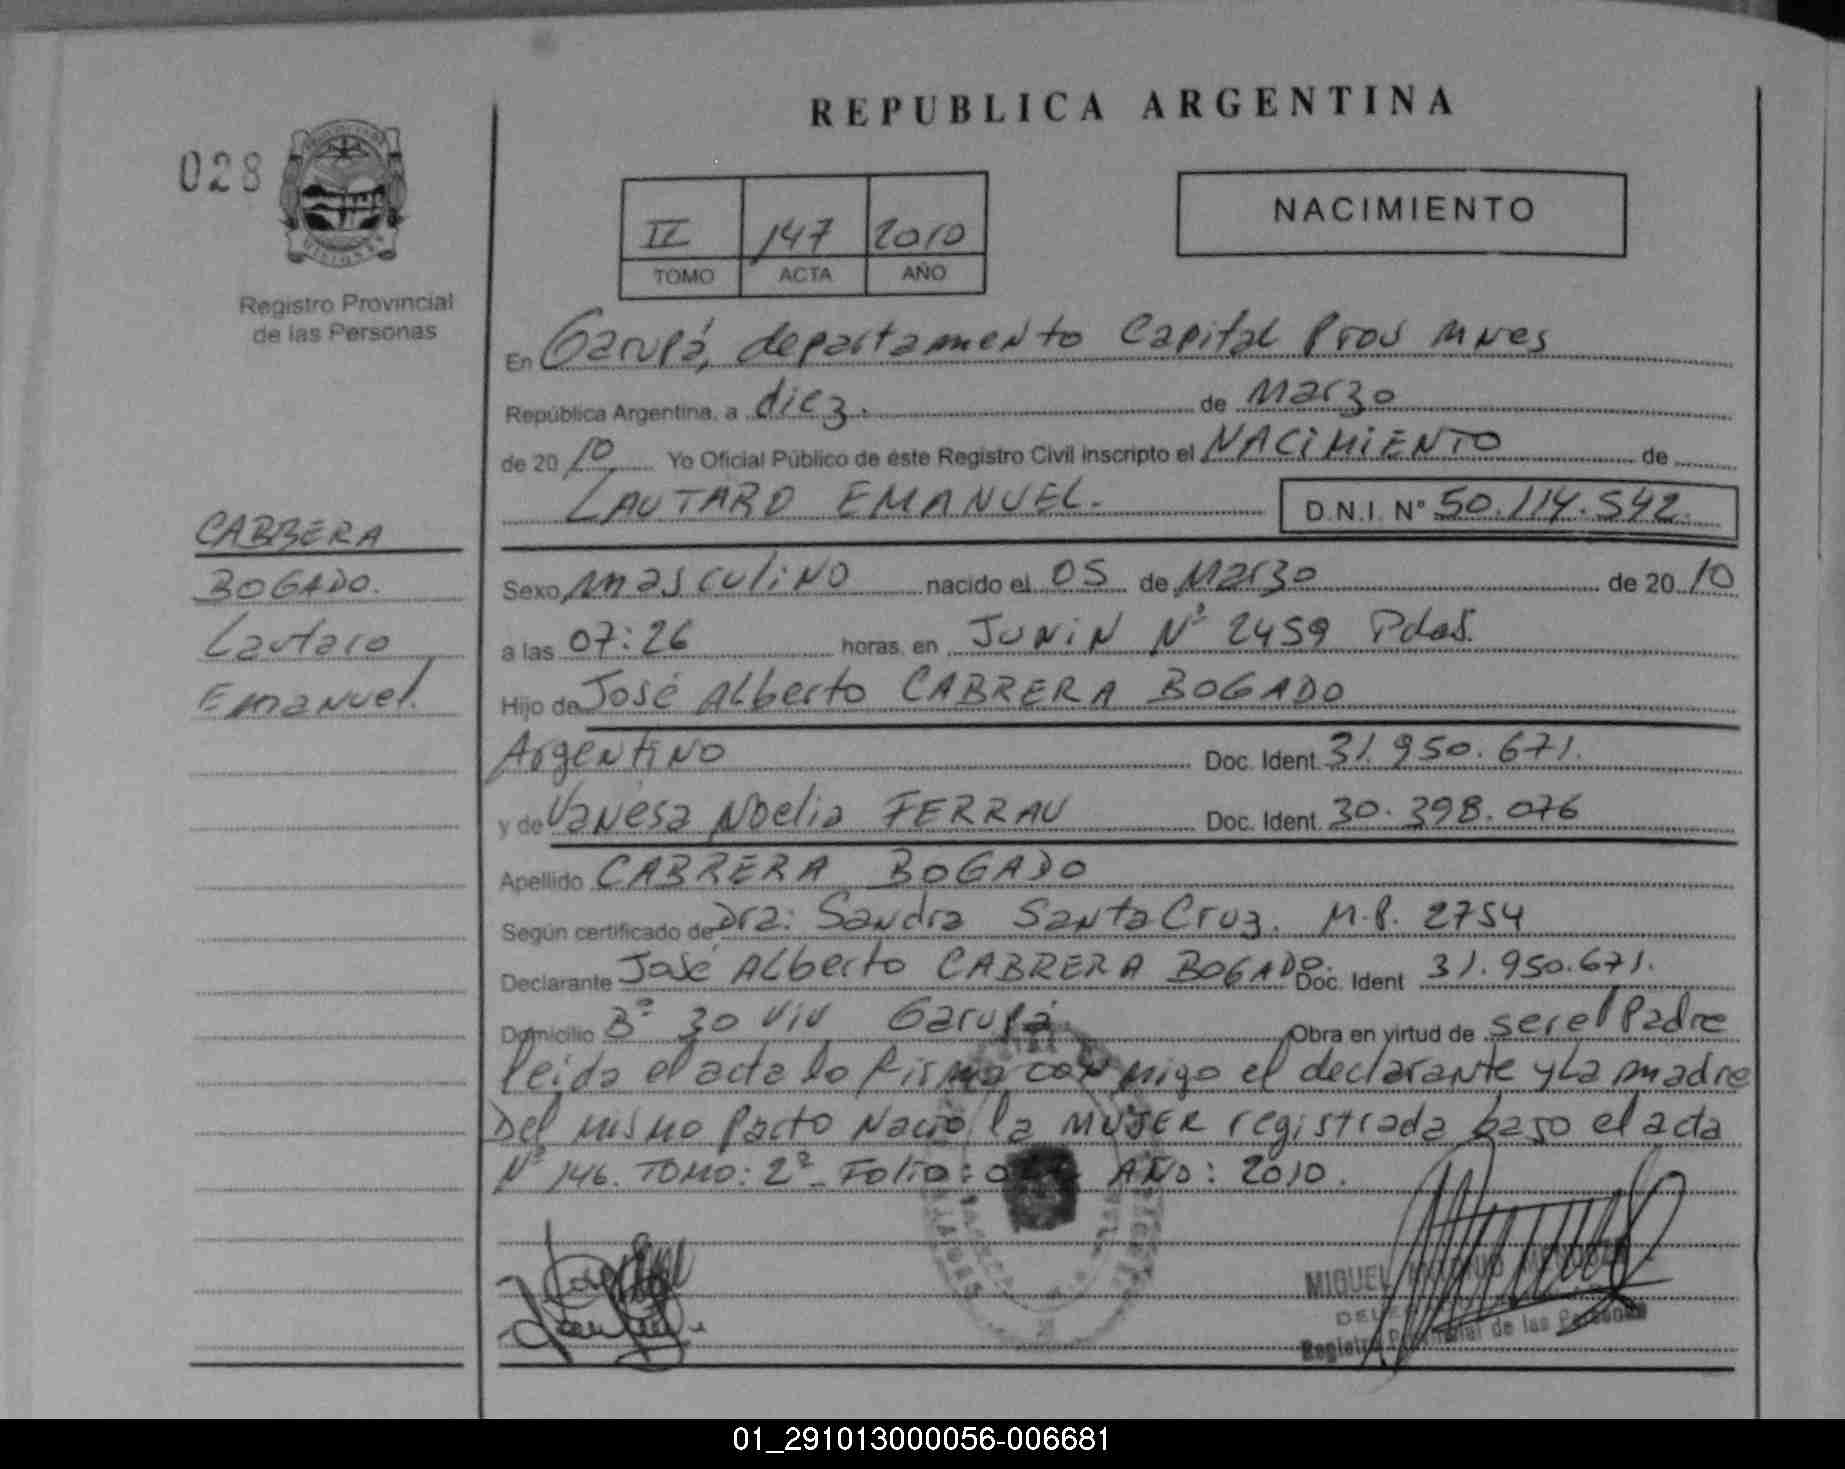 REPUBLICA ARGENTINA
028
NACIMIENTO
II 147 2010
TOMO ACTA AÑO
Registro Provincial
de las Personas
En Garupá, departamento Capital Prov Mnes
República Argentina, a diez. de Marzo
de 2010 Yo Oficial Público de éste Registro Civil inscripto el NACIMIENTO de
LAUTARO EMANUEL. D.N.I. N° 50.114.542.
CABRERA
BOGADO.
Lautaro
Emanuel.
Sexo masculino nacido el 05 de Marzo de 2010
a las 07:26 horas, en JUNIN N° 2459 Pdas.
Hijo de José Alberto CABRERA BOGADO
Argentino Doc. Ident. 31.950.671.
y de Vanesa Noelia FERRAU Doc. Ident. 30.398.076
Apellido CABRERA BOGADO
Según certificado de Dra: Sandra SantaCruz. M.P. 2754
Declarante José Alberto CABRERA BOGADO. Doc. Ident 31.950.671.
Domicilio B° 30 Viv Garupá Obra en virtud de ser el Padre
leida el acta lo firma conmigo el declarante y La madre
Del mismo Parto Nacio la MUJER registrada bajo el acta
N° 146. TOMO: 2° - FOLIO: AÑO: 2010.
MIGUEL ANTONIO
Registro Provincial de las Personas
01_291013000056-006681